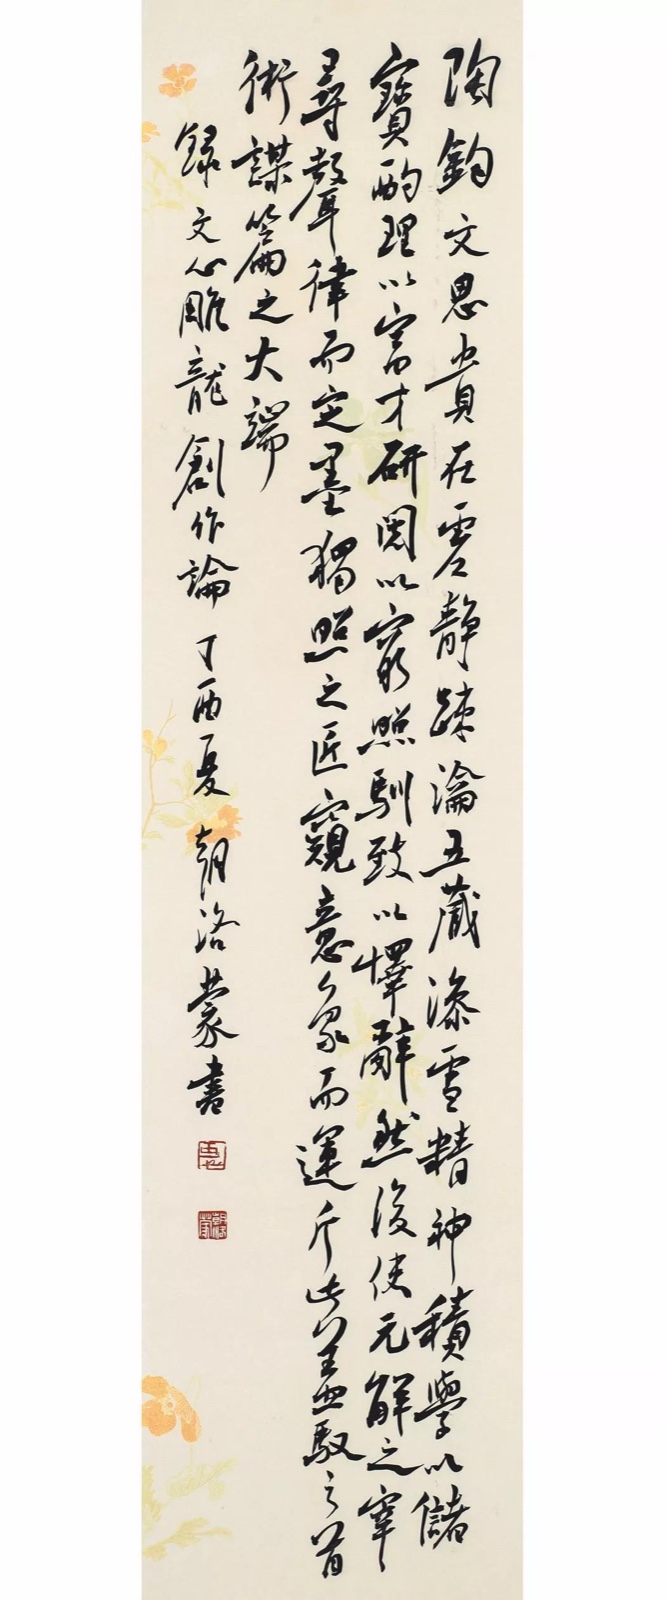 陶鈞文思貴在虛靜疎瀹五藏澡雪精神積學以儲
寶酌理以富才研閱以窮照馴致以懌辭然後使元解之宰
尋聲律而定墨獨照之匠窺意象而運斤此蓋馭文之首
術謀篇之大端
錄文心雕龍創作論丁酉夏朝洛蒙書